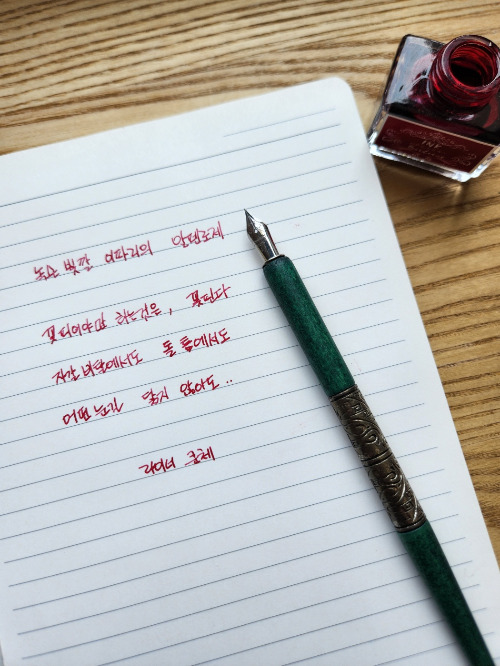 녹슨 빛깔 이파리의 알펜로제
꽃피어야만 하는것은, 꽃핀다
자갈 비탈에서도 돌 틈에서도
어떤 눈길 닿지 않아도..
라이너 쿤체
INK